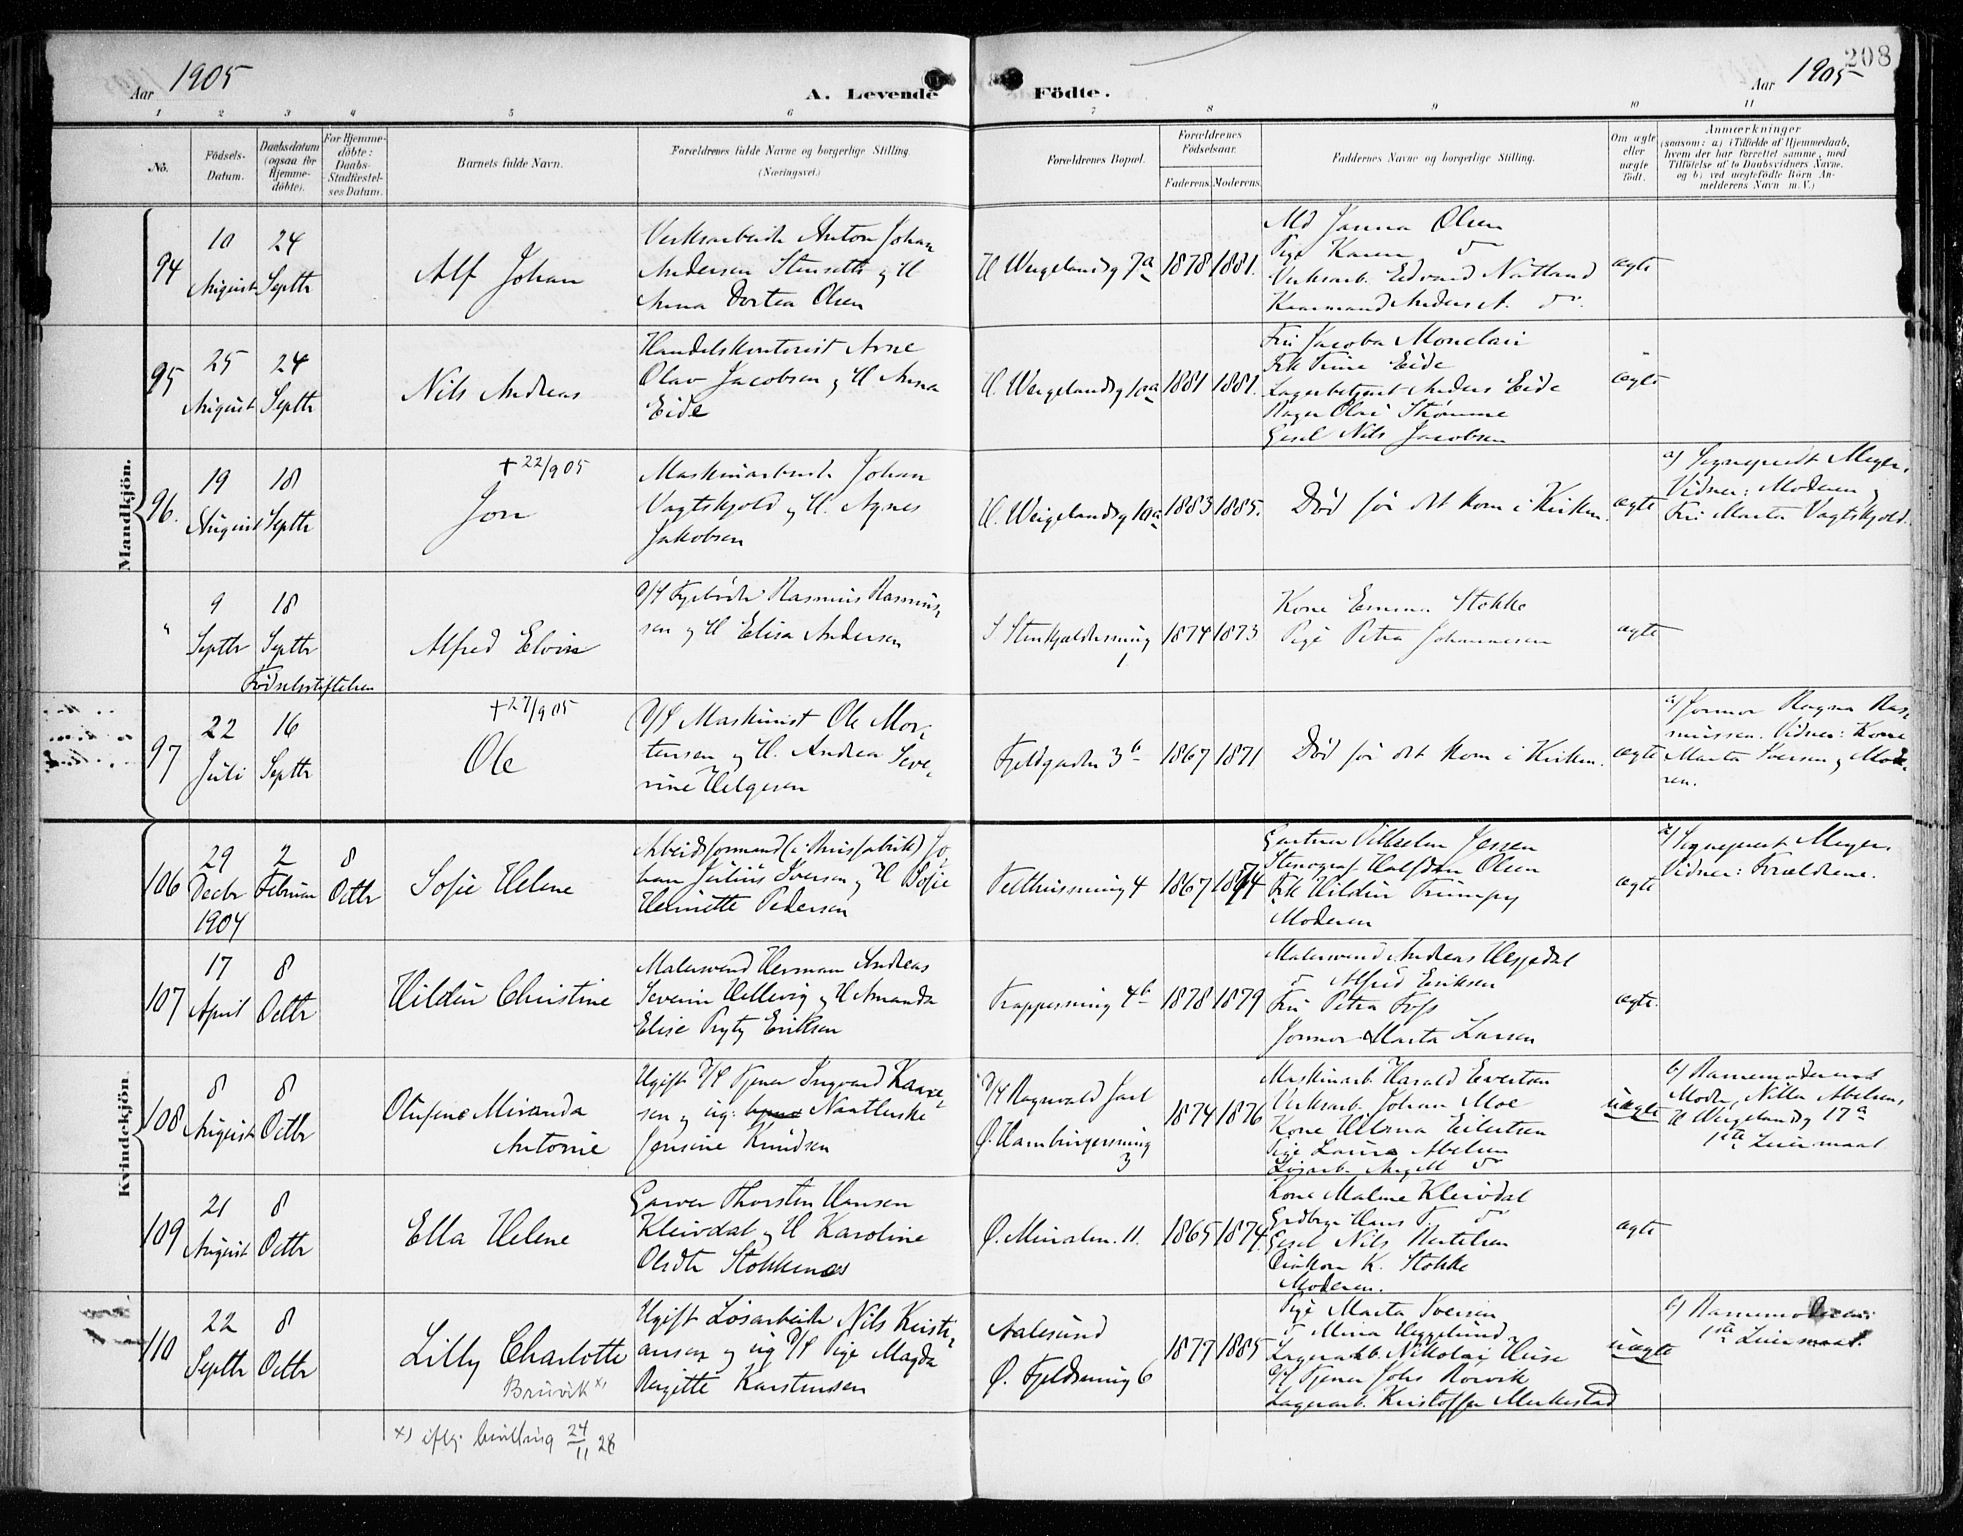 Aar 1905
A. Levende Födte.
Aar 1905
208
1 2 3 4 5 6 7 8 9 10 11
No.
Födsels-
Datum.
Daabsdatum
(ogsaa for
Hjemme-
döbte).
For Hjemme-
döbte:
Daabs-
Stadfæstel-
ses Datum.
Barnets fulde Navn.
Forældrenes fulde Navne og borgerlige Stilling.
(Næringsvei.)
Forældrenes Bopæl.
Forældrenes
Födselsaar.
Faderens. Moderens.
Faddernes Navne og borgerlige Stilling.
Om ægte
eller
uægte
födt.
Anmærkninger
(saasom: a) i Tilfælde af Hjemmedaab,
hvem der har forrettet samme, med
Tilföielse af to Daabsvidners Navne.
og b) ved uægtefödte Börn An-
melderens Navn m. V.)
Mandkjön.
94
10
August
24
Septbr
Alf Johan
Verksarbeider Anton Johan
Andersen Stensett og H
Anna Dortea Olsen
H Wergelandsg 7a
1878 1881.
Md Janna Olsen
Pige Karen do
Verksarb. Edvard Nätland
Anders A. do.
ægte
95
25
August
24
Septbr
Nils Andreas
Handelskontorist Arne
Olav Jacobsen og H Anna
Eide
H. Wergelandsg 10a
1881 1881.
Fru Jacoba Monclair
Frk Trine Eide
Lagerbetjent Anders Eide
Bager Olai Strømme
Gesel Nils Jacobsen
ægte
96.
19
August
18
Septbr
+ 22/9 05
Jon
Maskinarbeider Johan
Vagtskjold og H. Agnes
Jakobsen
H. Weigelandsg 10a
1883 1885.
Død før det kom i Kirken.
ægte
a) Sognepræst Meyer.
Vidner: Moderen og
Fru Marta Vagtskjold.
"
9
Septbr
18
Septbr
Fødselsstiftelsen
Alfred Elvin
D/S Fyrbøder Rasmus Rasmus-
sen og H Elisa Andersen
1
1874 1873
Kone Emma Stokke
Pige Petra Johannesen
ægte
97
22
Juli
16
Septbr
+ 27/9 05
Ole
D/S Maskinist Ole Mor-
tensen og H. Andrea Seve-
rine Helgesen
Fjeldgaden 3b
1867 1871
Død før det kom i Kirken.
ægte
a) Jormor Ragna Ras-
mussen. Vidner: Kone
Marta Iversen og Mode-
ren.
Kvindekjön.
106
29
Decbr
1904
2
Februar
8
Octbr
Sofie Helene
Arbeidsformand (i Prisfabrik) Jo-
han Julius Iversen og H Sofie
Henriette Pedersen
Felthussmug 4
1867 1874
Gartner Vilhelm Jessen
Stenograf Halfdan Olsen
Frk Hildur Trumpy
Moderen
ægte
a) Sognepræst Meyer.
Vidner: Forældrene.
107
17
April
8
Octbr
Hildur Christine
Malersvend Herman Andreas
Severin Hellevig og H Amanda
Elise Eriksen
Trappesmug 4b
1878 1879
Malersvend Andreas Hesjedal
do Alfred Eriksen
Fru Petra Foss
Jormor Marta Larsen
ægte.
108
8
August
8
Octbr
Olufine Miranda
Antonie
Ugift D/S Tjener Ingvard Kaare-
sen og ug: Naatlerske
Jensine Knudsen
D/S Ragnvald Jarl
Ø. Hamburgersmug
3
1874 1876
Maskinarb. Harald Evertsen
Verksarb. Johan Moe
Kone Helena Eilertsen
Pige Laura Abelsen
Løsarb. do
uægte
b) Barnemoderens
Moder, Nilla Abelsen,
H Wergelandsg 17a
1ste Leiermaal
109
21
August
8
Octbr
Ella Helene
Garver Thorstein Hansen
Kleivdal og H Karoline
Oldtr Stokkenæs
Ø. Muralm. 11.
1865 1874.
Kone Malene Kleivdal
Hans T. do
Gesel Nils Bertelsen
K. Stokke
Moderen.
ægte
110
22
Septbr
8
Octbr
Lilly Charlotte
Bruvik x)
Ugift Løsarbeider Nils Kristi-
ansen og ug D/S Pige Magda
Birgitte Karstensen
Aalesund
Ø. Fjeldsmug 6
1877 1885
Pige Marta Iversen
do Mina Heggelund
Lagerarb. Nikolai Huse
D/S Tjener Johs Rorvik
Lagerarb. Kristoffer Merkestad
uægte
b) Barnemoderen:
1ste Leiermaal.
x) iflg. bevilling 24/11 28